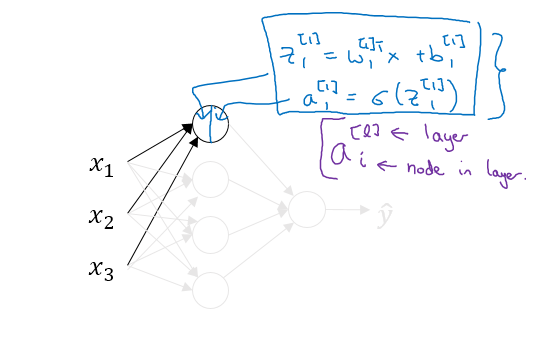 z₁^[1] = w₁^[1]T x + b₁^[1]
a₁^[1] = σ(z₁^[1])
a_i^[l] ← layer
← node in layer.
x₁
x₂
ŷ
x₃